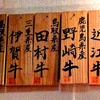 近江牛
鹿児島県産
野崎牛
鳥取県産
田村牛
三重県産
伊賀牛